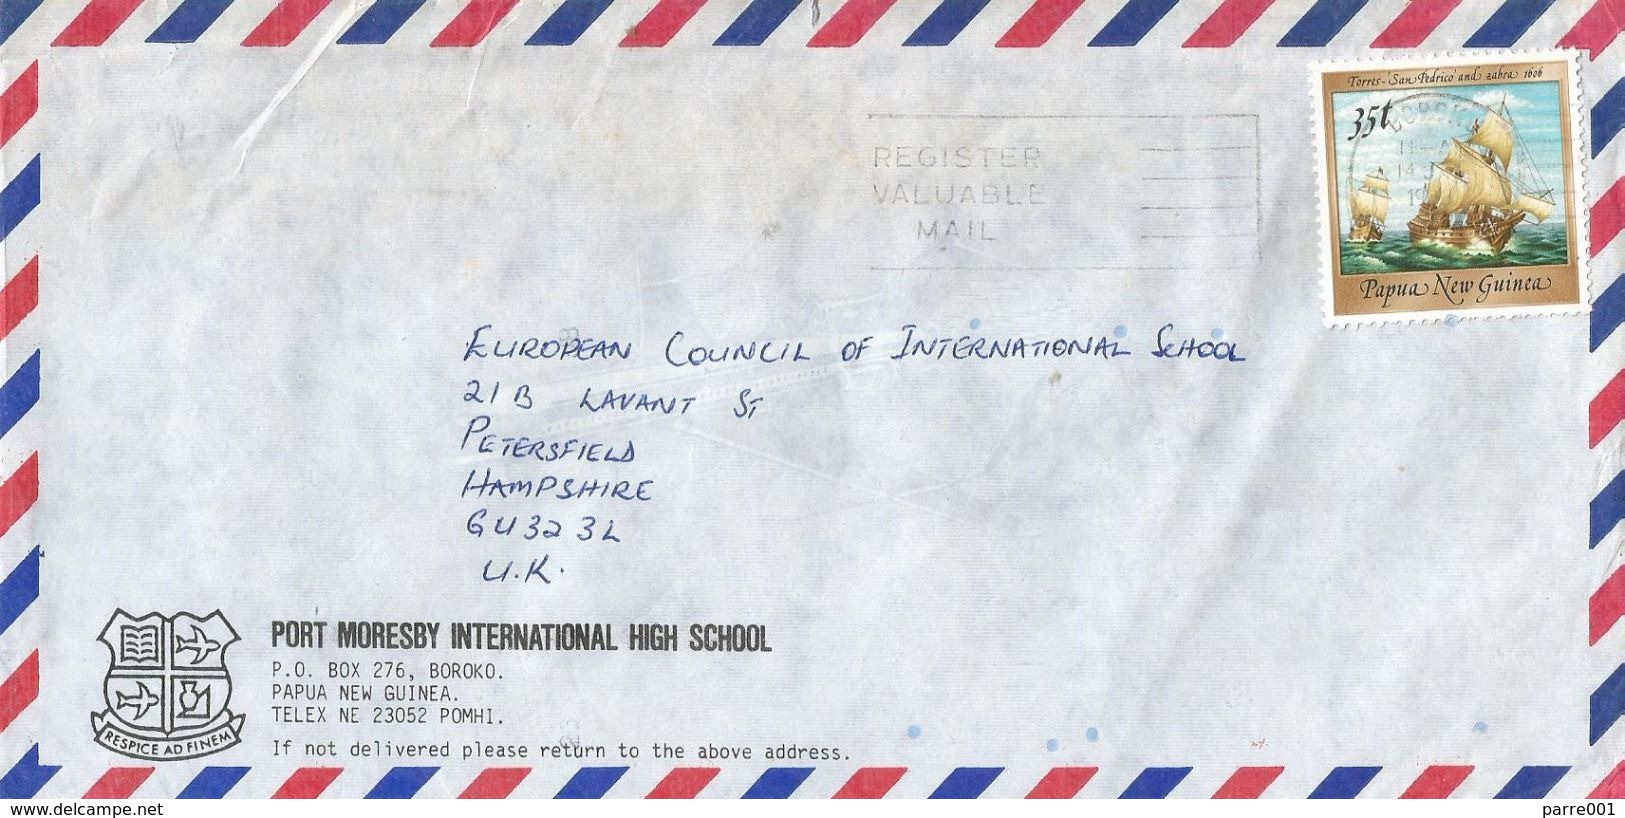 Torres-'San Pedrico' and zabra 1606
35t
BOROKO
14
REGISTER
VALUABLE
MAIL
Papua New Guinea
EUROPEAN COUNCIL OF INTERNATIONAL SCHOOL
21B LAVANT ST
PETERSFIELD
HAMPSHIRE
GU32 3L
U.K.
PORT MORESBY INTERNATIONAL HIGH SCHOOL
P.O. BOX 276, BOROKO.
PAPUA NEW GUINEA.
TELEX NE 23052 POMHI.
If not delivered please return to the above address.
RESPICE AD FINEM
www.delcampe.net
parre001